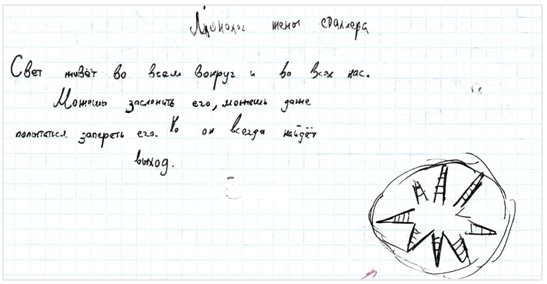 Монолог жены сталкера
Свет живёт во всем вокруг и во всех нас.
Можешь заслонить его, можешь даже
попытаться запереть его. Но он всегда найдёт
выход.